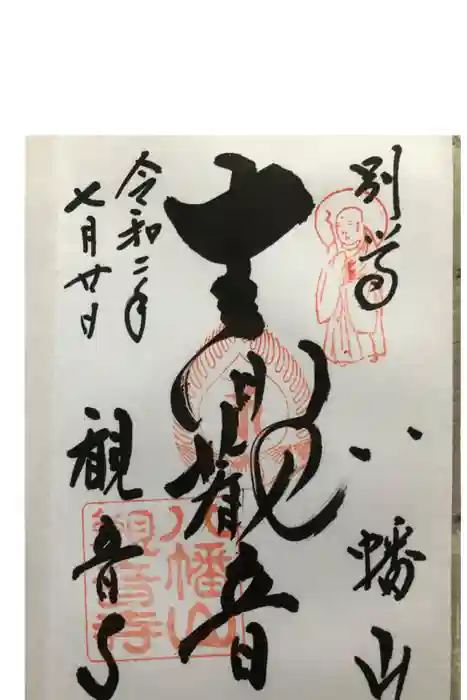 八幡山
観音
令和二年
七月廿日
観音寺
八幡山
観音寺